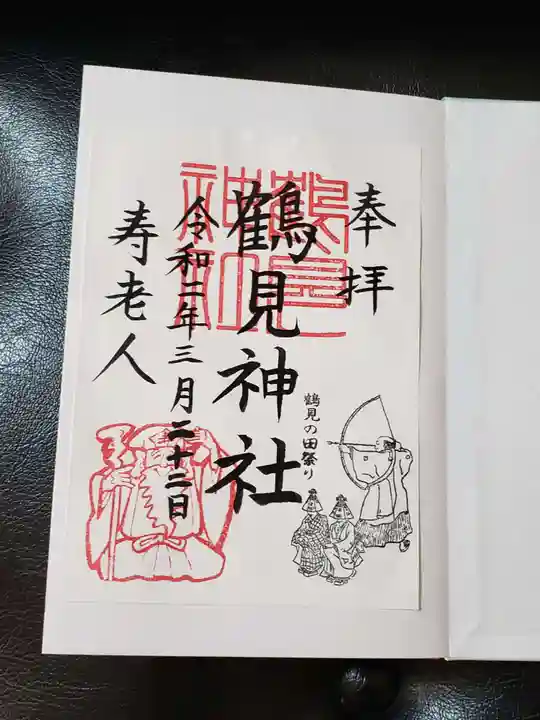 奉拝
鶴見神社
鶴見の田祭り
令和二年三月二十二日
寿老人
鶴見神社